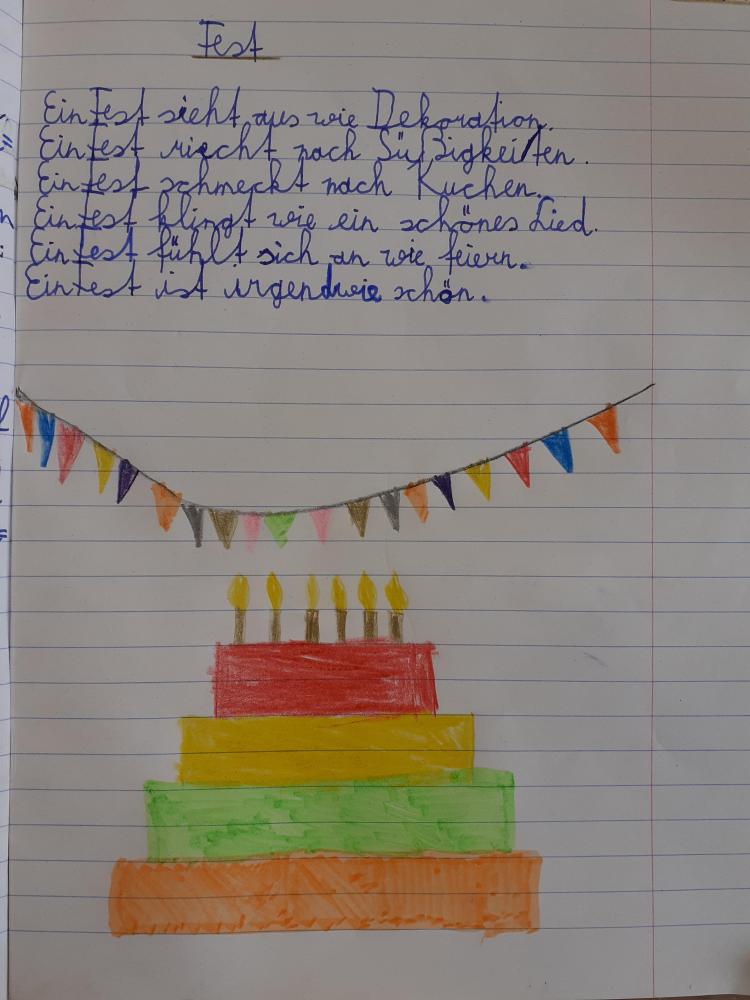 Fest
Ein Fest sieht aus wie Dekoration.
Ein Fest riecht nach Süßigkeiten.
Ein Fest schmeckt nach Kuchen.
Ein Fest klingt wie ein schönes Lied.
Ein Fest fühlt sich an wie feiern.
Ein Fest ist irgendwie schön.